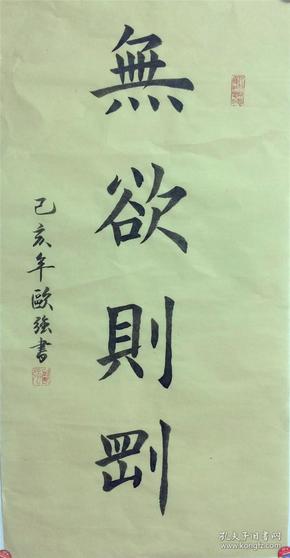 無欲則剛
己亥年歐強書
孔夫子旧书网